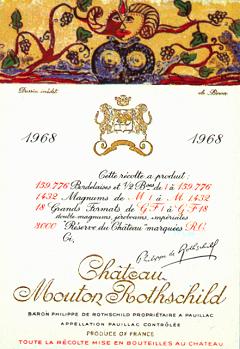 Dessin inédit de Bona
1968 1968
Cette récolte a produit :
139.776 Bordelaises et 1/2 Bses de 1 à 139.776
1432 Magnums de M 1 à M 1432
18 Grands Formats de G F 1 à G F 18
double magnums, jeroboams, impériales
3000 Réserve du Château marquées R.C.
Ci,
Philippe de Rothschild
Château
Mouton Rothschild
BARON PHILIPPE DE ROTHSCHILD PROPRIÉTAIRE A PAUILLAC
APPELLATION PAUILLAC CONTRÔLÉE
PRODUCE OF FRANCE
TOUTE LA RÉCOLTE MISE EN BOUTEILLES AU CHATEAU